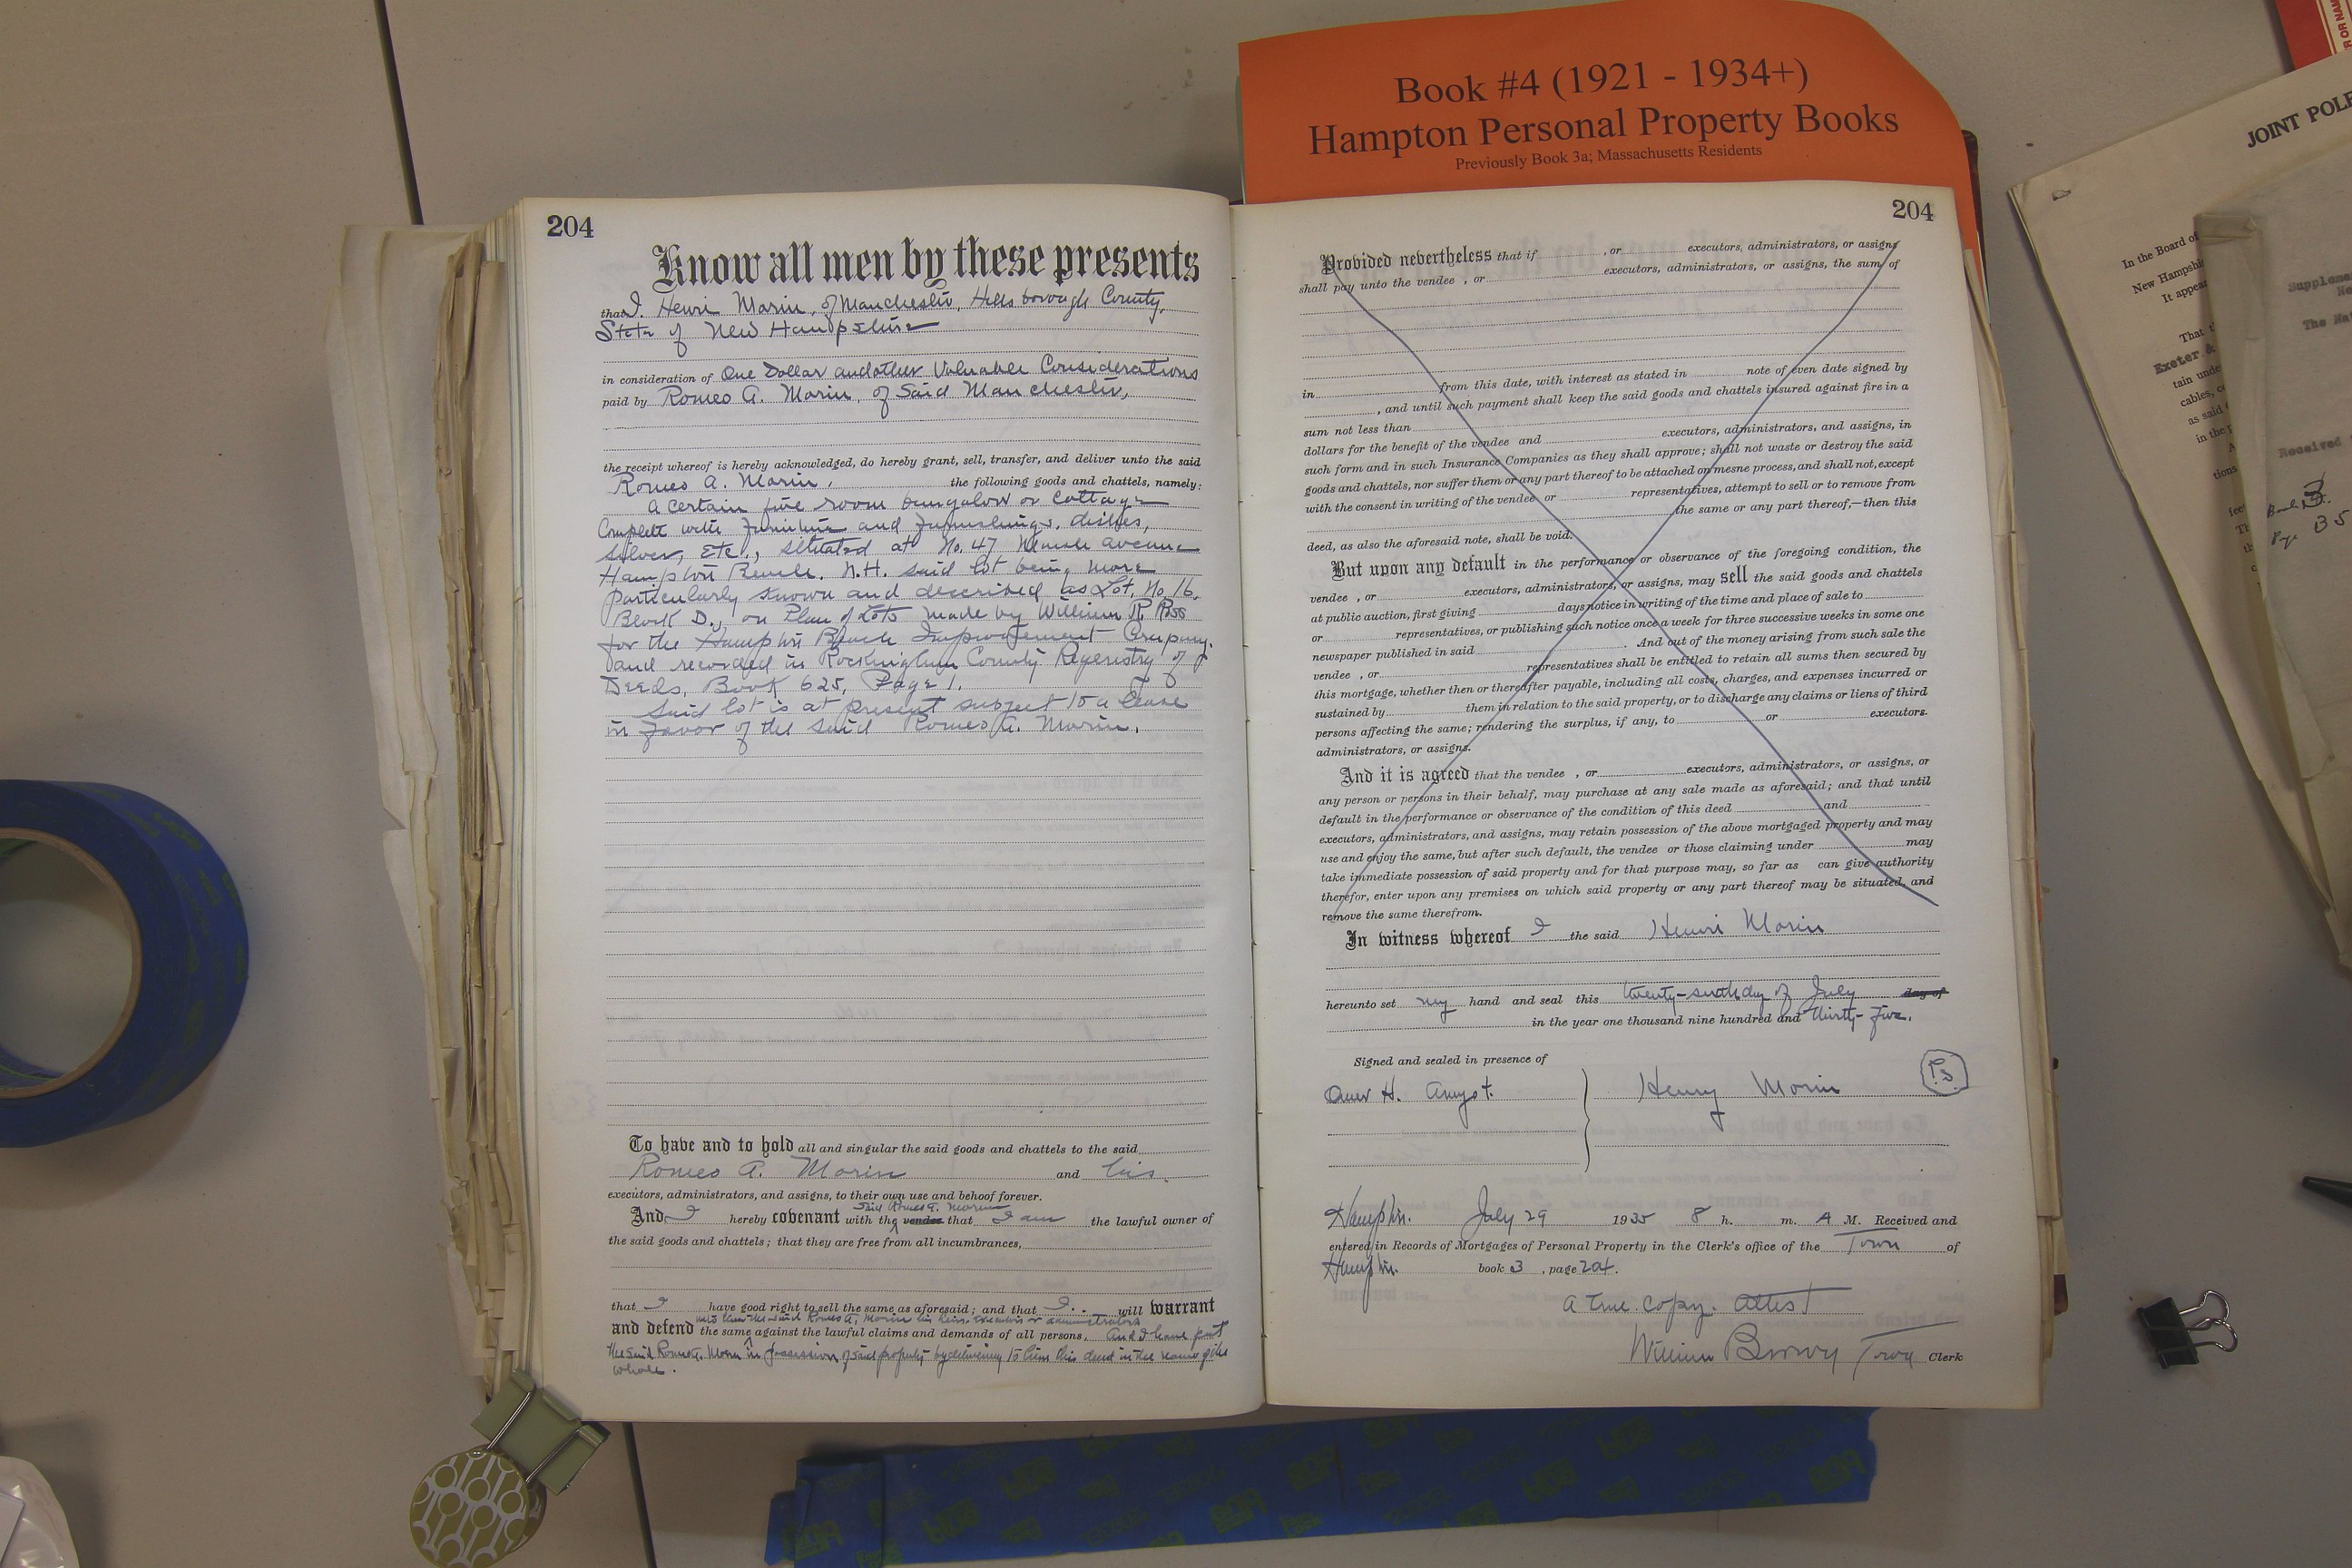 Book #4 (1921 - 1934+)
Hampton Personal Property Books
Previously Book 3a; Massachusetts Residents
204
Know all men by these presents
that I, Henri Morin, of Manchester, Hillsborough County,
State of New Hampshire
in consideration of One Dollar and other Valuable Considerations
paid by Romeo A. Morin, of Said Manchester,
the receipt whereof is hereby acknowledged, do hereby grant, sell, transfer, and deliver unto the said
Romeo A. Morin, the following goods and chattels, namely:
A certain five room bungalow or Cottage
Complete with Furniture and Furnishings, dishes,
silver, Etc., situated at No. 47 avenue
Hampton Beach, N.H. said lot being more
particularly known and described as Lot, No. 16,
Block D., on Plan of Lots made by William R Ross
for the Hampton Beach Improvement Company,
and recorded in Rockingham County Regerestry of
Deeds, Book 625, Page 1.
Said lot is at present subject to a lease
in favor of the said Romeo A. Morin.
To have and to hold all and singular the said goods and chattels to the said
Romeo A. Morin and his
executors, administrators, and assigns, to their own use and behoof forever.
said Romeo A. Morin
And I hereby covenant with the vendee that I am the lawful owner of
the said goods and chattels; that they are free from all incumbrances,
that I have good right to sell the same as aforesaid; and that I will warrant
unto him the said Romeo A. Morin his heirs, executors or administrators
and defend the same against the lawful claims and demands of all persons. And I have put
the said Romeo A. Morin in possession of said property by delivering to him this deed in the name of the
whole.
204
Provided nevertheless that if , or executors, administrators, or assigns
shall pay unto the vendee , or executors, administrators, or assigns, the sum of
in from this date, with interest as stated in note of even date signed by
, and until such payment shall keep the said goods and chattels insured against fire in a
sum not less than
dollars for the benefit of the vendee and executors, administrators, and assigns, in
such form and in such Insurance Companies as they shall approve; shall not waste or destroy the said
goods and chattels, nor suffer them or any part thereof to be attached on mesne process, and shall not, except
with the consent in writing of the vendee or representatives, attempt to sell or to remove from
the same or any part thereof,—then this
deed, as also the aforesaid note, shall be void.
But upon any default in the performance or observance of the foregoing condition, the
vendee , or executors, administrators, or assigns, may sell the said goods and chattels
at public auction, first giving days notice in writing of the time and place of sale to
or representatives, or publishing such notice once a week for three successive weeks in some one
newspaper published in said . And out of the money arising from such sale the
vendee , or representatives shall be entitled to retain all sums then secured by
this mortgage, whether then or thereafter payable, including all costs, charges, and expenses incurred or
sustained by them in relation to the said property, or to discharge any claims or liens of third
persons affecting the same; rendering the surplus, if any, to or executors.
administrators, or assigns.
And it is agreed that the vendee , or executors, administrators, or assigns, or
any person or persons in their behalf, may purchase at any sale made as aforesaid; and that until
default in the performance or observance of the condition of this deed and
executors, administrators, and assigns, may retain possession of the above mortgaged property and may
use and enjoy the same, but after such default, the vendee or those claiming under may
take immediate possession of said property and for that purpose may, so far as can give authority
therefor, enter upon any premises on which said property or any part thereof may be situated, and
remove the same therefrom.
In witness whereof I the said Henri Morin
hereunto set my hand and seal this twenty-sixth day of July day of
in the year one thousand nine hundred and thirty-five.
Signed and sealed in presence of
Omer H. Amyot. Henry Morin
Hampton. July 29 1935 8 h. m. A M. Received and
entered in Records of Mortgages of Personal Property in the Clerk's office of the Town of
Hampton. book 3 , page 204.
A true copy. Attest
William Brown Town Clerk
JOINT POLE
In the Board of
New Hampshir
It appear
That t
Exeter &
tain unde
cables, c
as said
in the p
tions
Supplem
Received
Book 3.
Page 35
OR NAM